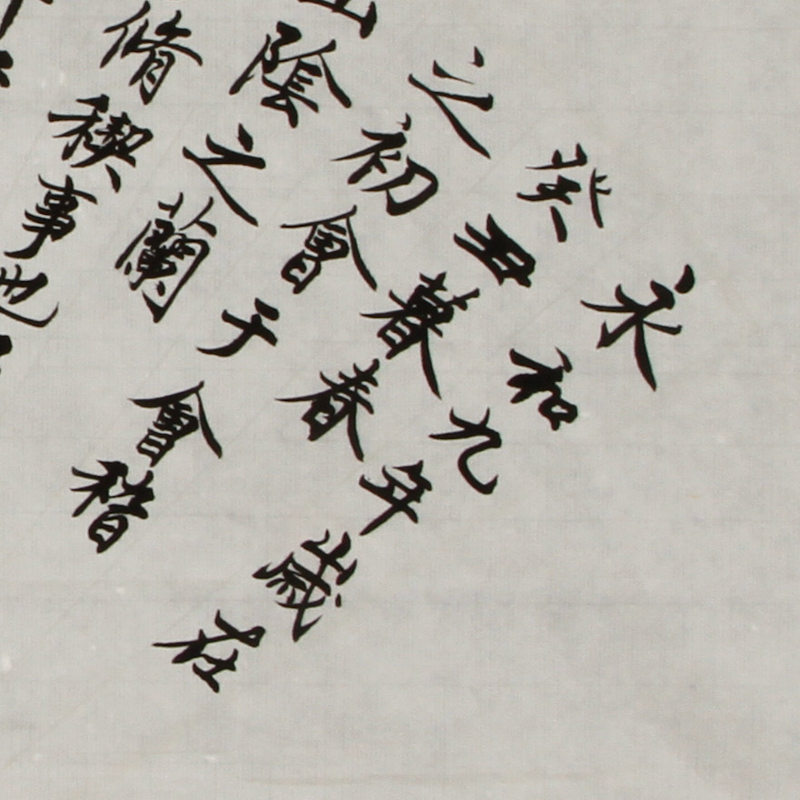 永和九年歲在
癸丑暮春
之初會于會稽
山陰之蘭
脩稧事也